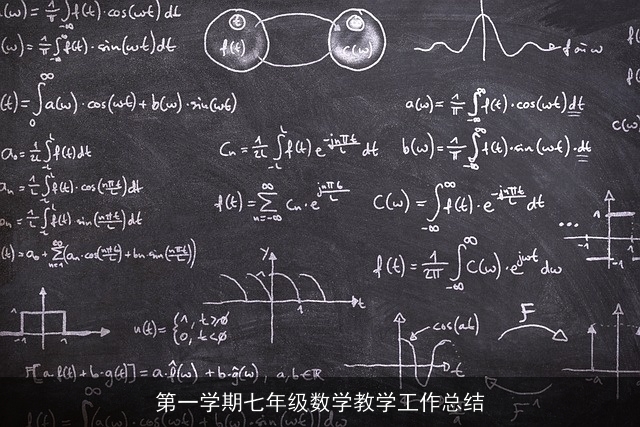 (ω) = 1/π ∫ f(t)·cos(ωt) dt
(ω) = 1/π ∫ f(t)·sin(ωt) dt
t
f(t)
c(ω)
(t) = ∫₀^∞ a(ω)·cos(ωt) + b(ω)·sin(ωt)
a(ω) = 1/π ∫_{-∞}^{∞} f(t)·cos(ωt) dt
c(ω)
a₀ = 1/2L ∫_{-L}^{L} f(t) dt
Cn = 1/2L ∫_{-L}^{L} f(t) e^{-jnπt/L} dt
b(ω) = 1/π ∫_{-∞}^{∞} f(t)·sin(ωt)·dt
an = 1/L ∫_{-L}^{L} f(t)·cos(nπt/L) dt
f(t) = ∑_{n=-∞}^{∞} Cn·e^{jnπt/L}
C(ω) = ∫_{-∞}^{∞} f(t)·e^{-jnπt/L} dt
bn = 1/L ∫_{-L}^{L} f(t)·sin(nπt/L) dt
...
(t) = a₀ + ∑_{n=1}^{∞} (an·cos(nπt/L) + bn·sin(nπt/L))
f(t) = 1/2π ∫_{-∞}^{∞} C(ω)·e^{jωt} dω
y
1
1
t
u(t) = { 1, t≥0
0, t<0
cos(at)
t
F
F[a·f(t) + b·g(t)] = a·f̂(ω) + b·ĝ(ω), a,b∈ℝ
-a
1
第一学期七年级数学教学工作总结